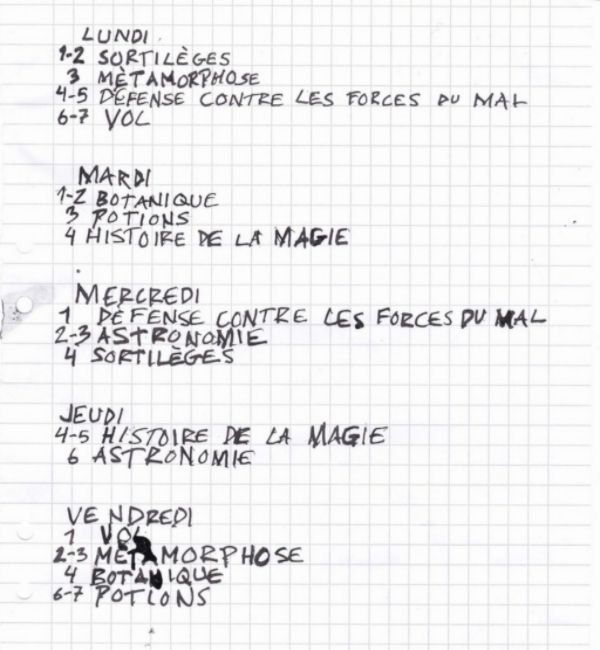 LUNDI
1-2 SORTILÈGES
3 MÈTAMORPHOSE
4-5 DÉFENSE CONTRE LES FORCES DU MAL
6-7 VOL
MARDI
1-2 BOTANIQUE
3 POTIONS
4 HISTOIRE DE LA MAGIE
MERCREDI
1 DÉFENSE CONTRE LES FORCES DU MAL
2-3 ASTRONOMIE
4 SORTILÈGES
JEUDI
4-5 HISTOIRE DE LA MAGIE
6 ASTRONOMIE
VENDREDI
1 VOL
2-3 MÉTAMORPHOSE
4 BOTANIQUE
6-7 POTIONS